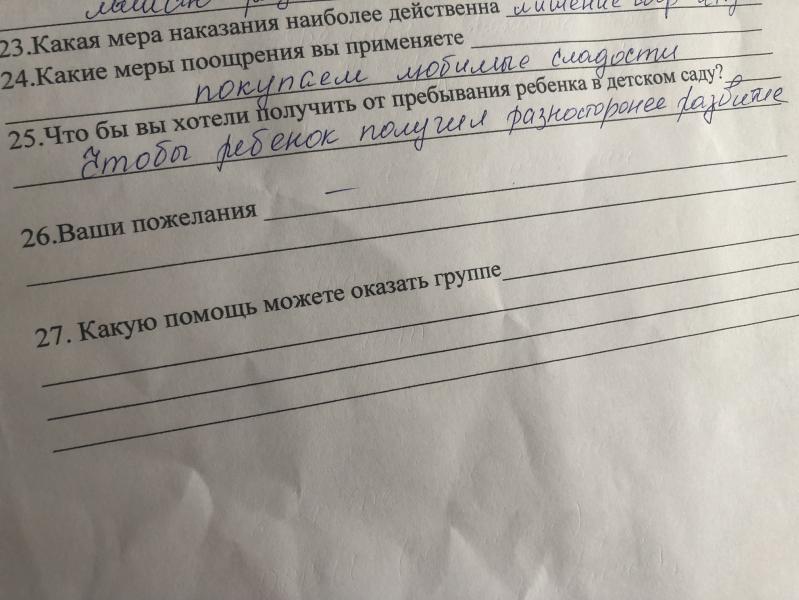 23.Какая мера наказания наиболее действенна лишение
24.Какие меры поощрения вы применяете
покупаем любимые сладости
25.Что бы вы хотели получить от пребывания ребенка в детском саду?
Чтобы ребенок получил разносторонее развитие
26.Ваши пожелания —
27. Какую помощь можете оказать группе